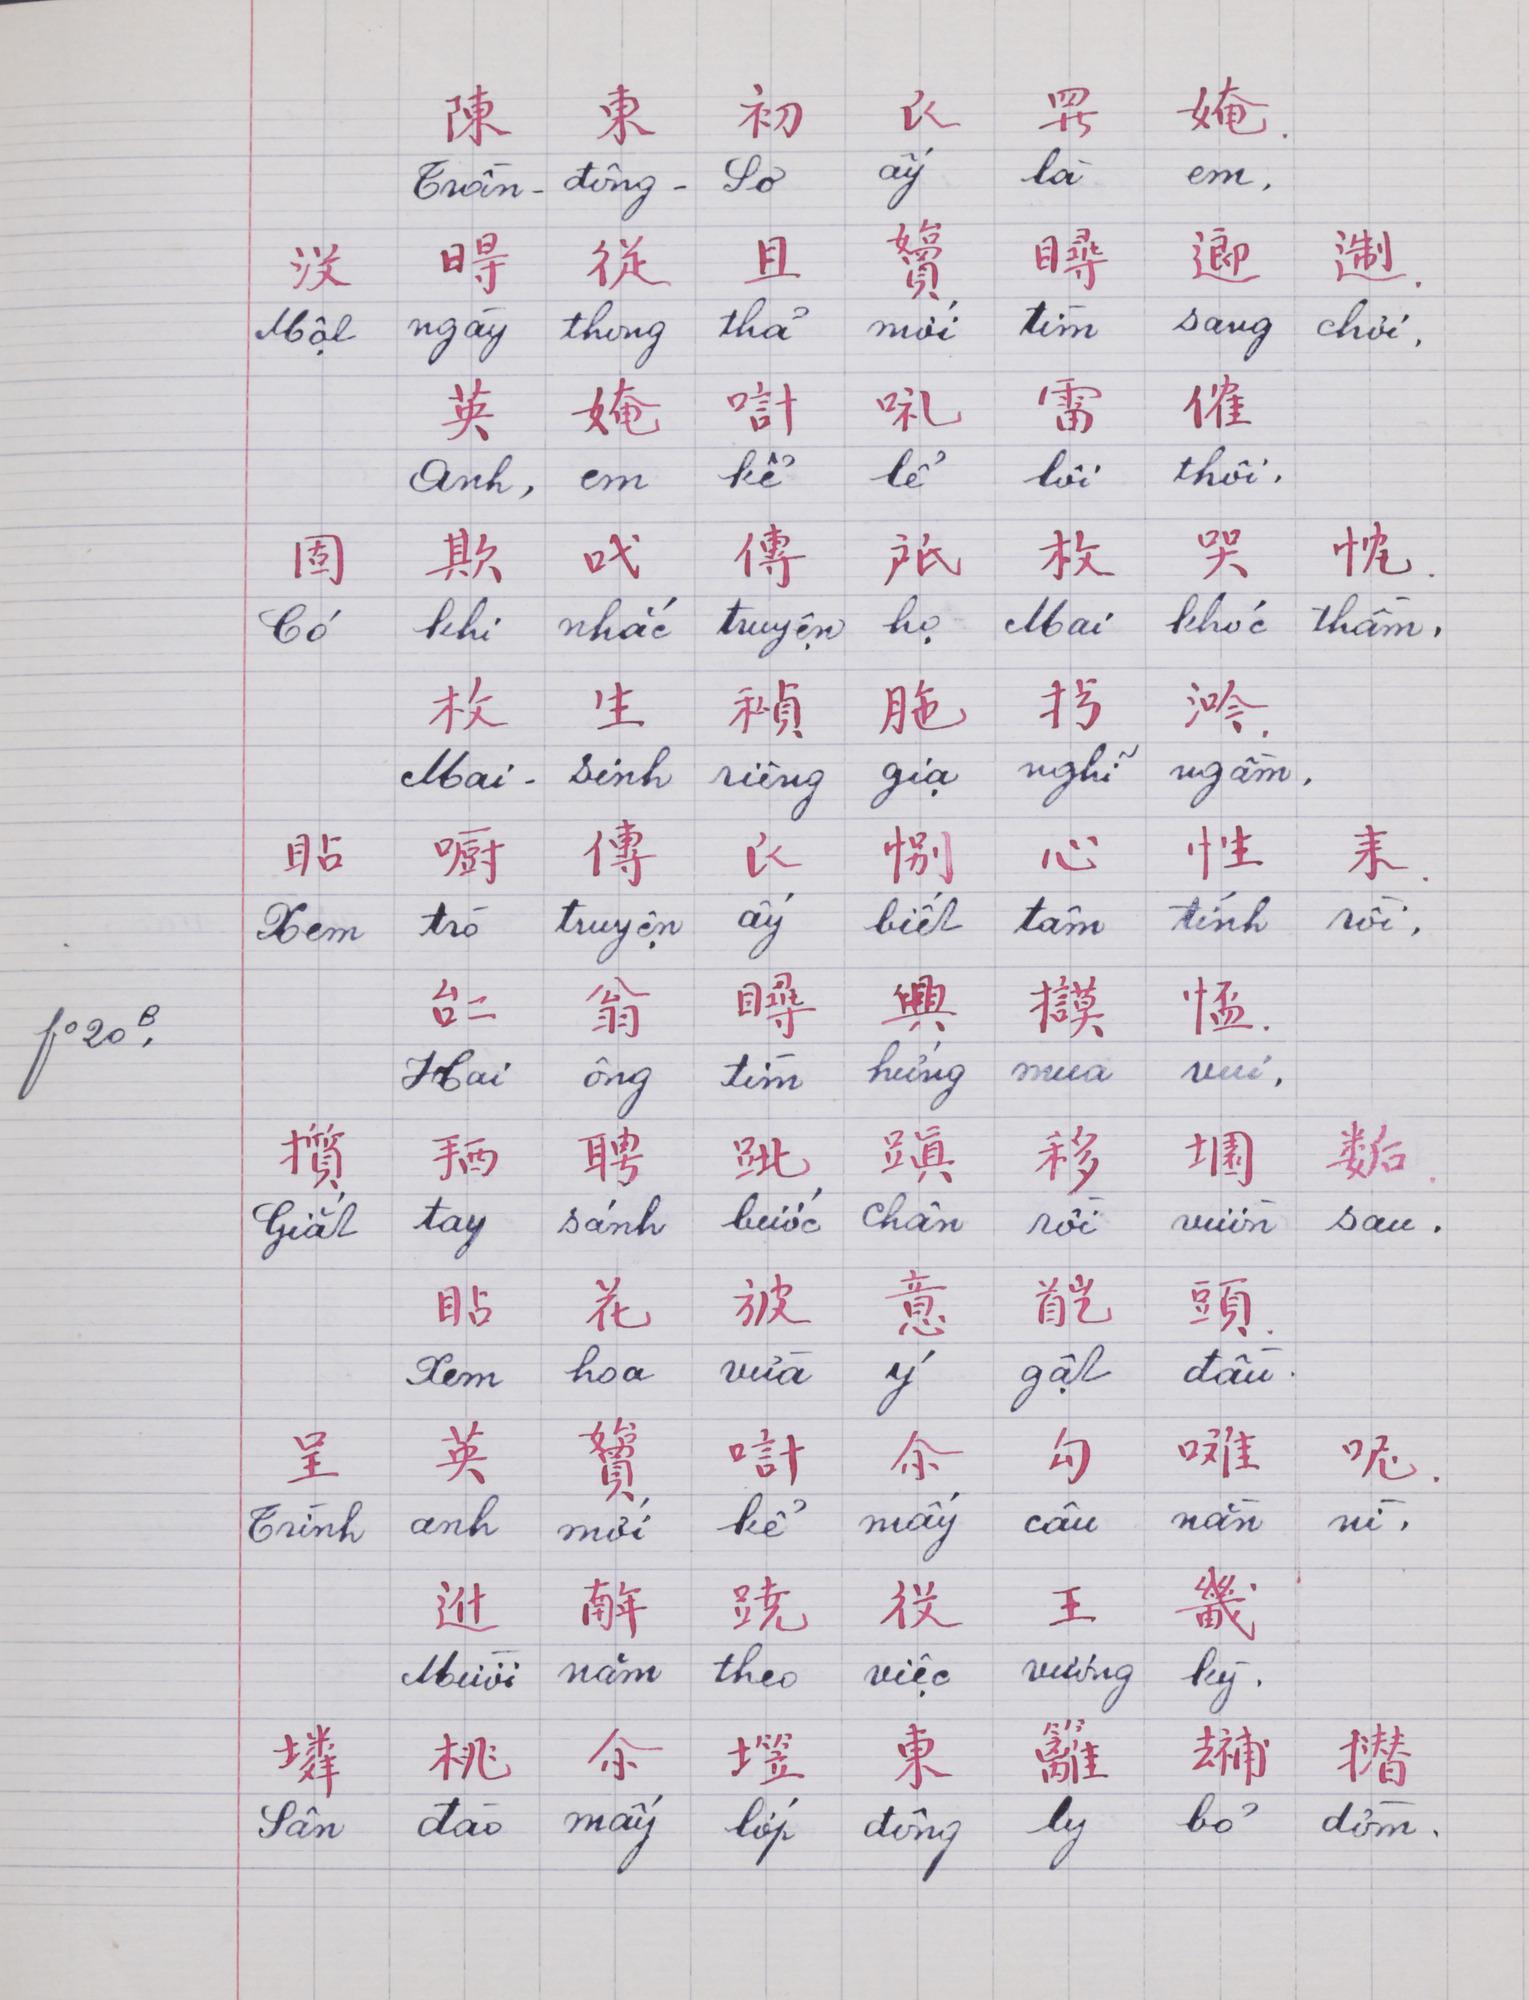 陳 東 初 𧘇 𪜀 㛪.
Trần - đông - Sơ ấy là em.
沒 𣈜 從 且 𡤔 𥊚 𨖅 𨔈.
Một ngày thong thả mới tìm sang chơi.
英 㛪 計 𠲥 雷 催
Anh, em kể lể lôi thôi.
固 欺 𠯅 傳 𢩜 枚 哭 忱.
Có khi nhắc truyện họ Mai khóc thầm.
枚 生 𥢅 𦙀 𢪀 㕋.
Mai - Sinh riêng giạ nghĩ ngầm.
貼 𠻀 傳 𧘇 別 心 性 耒.
Xem trò truyện ấy biết tâm tính rồi.
𠄩 翁 𥊚 興 𢱖 㤕.
Hai ông tìm hứng mua vui.
f° 20 B.
攢 𢬣 聘 𨀈 蹎 移 園 𢖖.
Giắt tay sánh bước chân rồi vườn sau.
貼 花 𣃣 意 𩠓 頭.
Xem hoa vừa ý gật đầu.
呈 英 𡤔 計 𠇍 勾 㘓 呢.
Trình anh mới kể mấy câu nằn nì.
𨑮 𢆥 蹺 役 王 畿
Mười năm theo việc vương kỳ.
𡑝 桃 𠇍 笠 東 籬 補 㨔
Sân đào mấy lớp đông ly bỏ dờm.